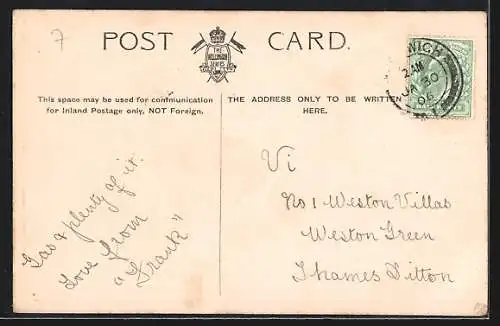 7
POST CARD.
THE
WELLINGTON
SERIES
This space may be used for communication
for Inland Postage only, NOT Foreign.
THE ADDRESS ONLY TO BE WRITTEN
HERE.
WICH
JA 30
06
Gas & plenty of it.
Love from
"Frank"
Vi
No 1 Weston Villas
Weston Green
Thames Ditton